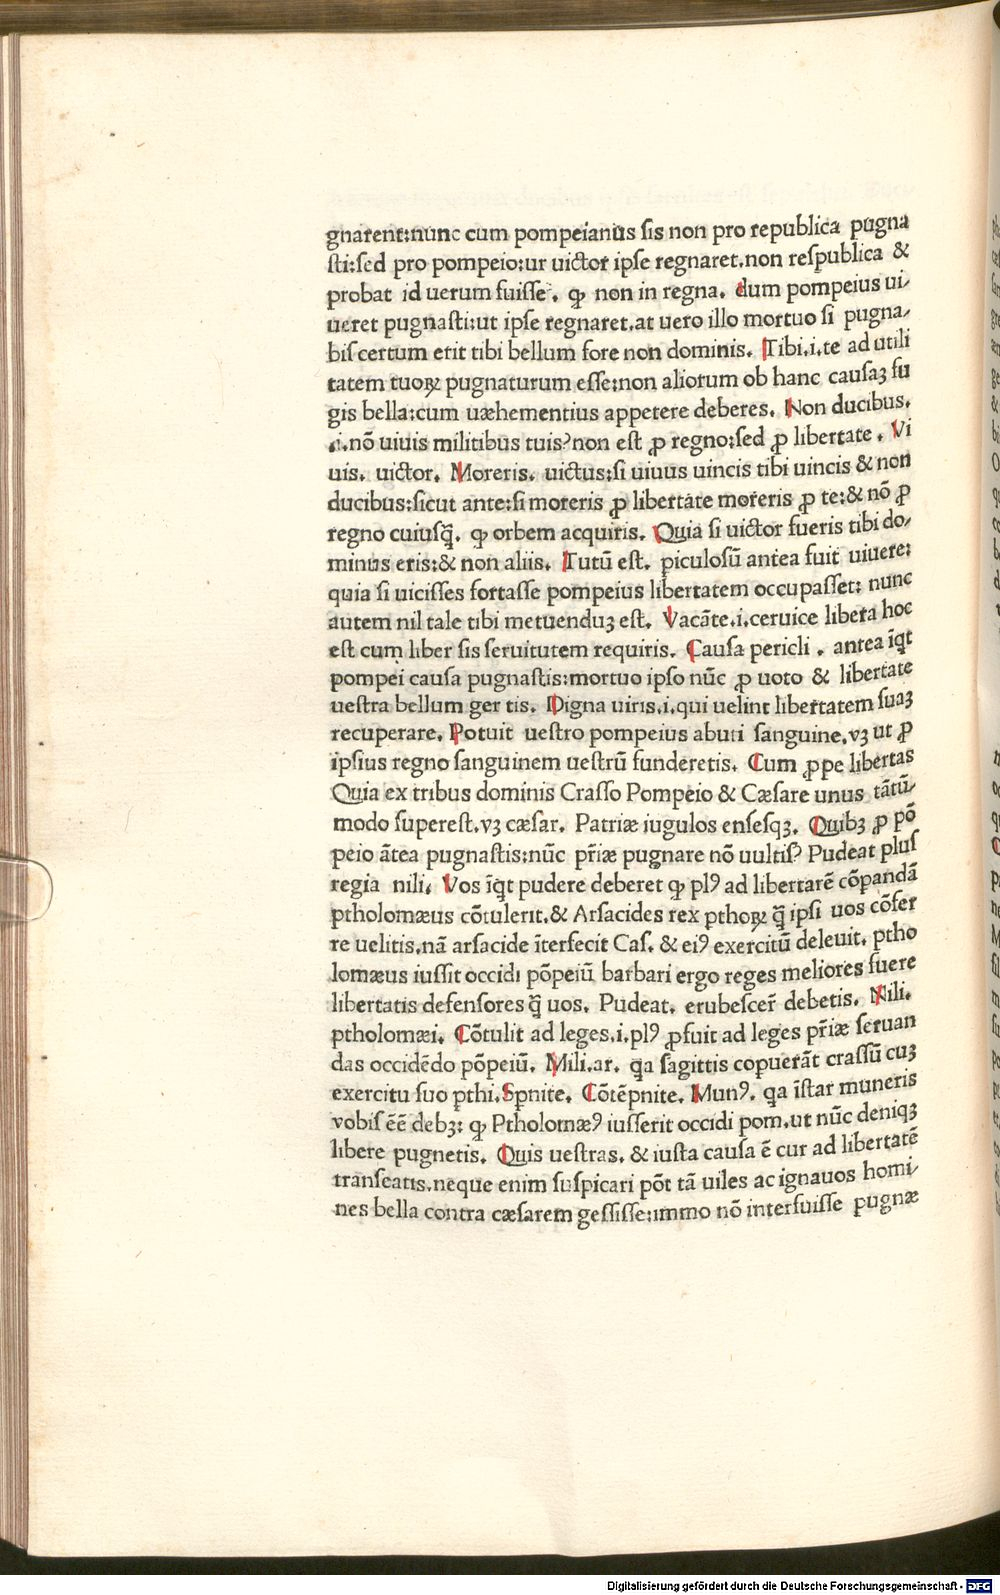 gnarent:nunc cum pompeianus sis non pro republica pugna
sti:sed pro pompeio:ur uictor ipse regnaret.non respublica &
probat id uerum fuisse. ꝙ non in regna. dum pompeius ui/
ueret pugnasti:ut ipse regnaret.at uero illo mortuo si pugna/
bis certum erit tibi bellum fore non dominis. Tibi.i.te ad utili
tatem tuoꝝ pugnaturum esse:non aliorum ob hanc causaꝫ fu
gis bella:cum uæhementius appetere deberes. Non ducibus.
.i.nō uiuis militibus tuis?non est ꝓ regno:sed ꝓ libertate . Vi
uis. uictor. Moreris. uictus:si uiuus uincis tibi uincis & non
ducibus:sicut ante:si moreris ꝓ libertate moreris ꝓ te:& nō ꝓ
regno cuiusq̄. ꝙ orbem acquiris. Quia si uictor fueris tibi do/
minus eris:& non aliis. Tutū est. piculosū antea fuit uiuere:
quia si uicisses fortasse pompeius libertatem occupasset: nunc
autem nil tale tibi metuenduꝫ est. Vacāte.i.ceruice libera hoc
est cum liber sis seruitutem requiris. Causa pericli . antea īqt
pompei causa pugnastis:mortuo ipso nūc ꝓ uoto & libertate
uestra bellum ger tis. Digna uiris.i.qui uelint libertatem suaꝫ
recuperare. Potuit uestro pompeius abuti sanguine.vꝫ ut ꝓ
ipsius regno sanguinem uestrū funderetis. Cum ꝓpe libertas
Quia ex tribus dominis Crasso Pompeio & Cæsare unus tātū/
modo superest.vꝫ cæsar. Patriæ iugulos ensesqꝫ. Quibꝫ ꝓ pō
peio ātea pugnastis:nūc pr̄iæ pugnare nō uultis? Pudeat plus
regia nili. Vos īqt pudere deberet ꝙ plꝰ ad libertatē cōpandā
ptholomæus cōtulerit.& Arsacides rex pthoꝝ q̄ ipsi uos cōfer
re uelitis.nā arsacide īterfecit Cas. & eiꝰ exercitū deleuit. ptho
lomæus iussit occidi pōpeiū barbari ergo reges meliores fuere
libertatis defensores q̄ uos. Pudeat. erubescer̄ debetis. Nili.
ptholomæi. Cōtulit ad leges.i.plꝰ ꝓfuit ad leges pr̄iæ seruan
das occidēdo pōpeiū. Mili.ar. qa sagittis copuerāt crassū cuꝫ
exercitu suo pthi.Spnite. Cōtēpnite. Munꝰ. qa īstar muneris
vobis ēē debꝫ: ꝙ Ptholomæꝰ iusserit occidi pom.ut nūc deniqꝫ
libere pugnetis. Quis uestras. & iusta causa ē cur ad libertatē
transeatis.neque enim suspicari pōt tā uiles ac ignauos homi/
nes bella contra cæsarem gessisse:immo nō interfuisse pugnæ
Digitalisierung gefördert durch die Deutsche Forschungsgemeinschaft - DFG